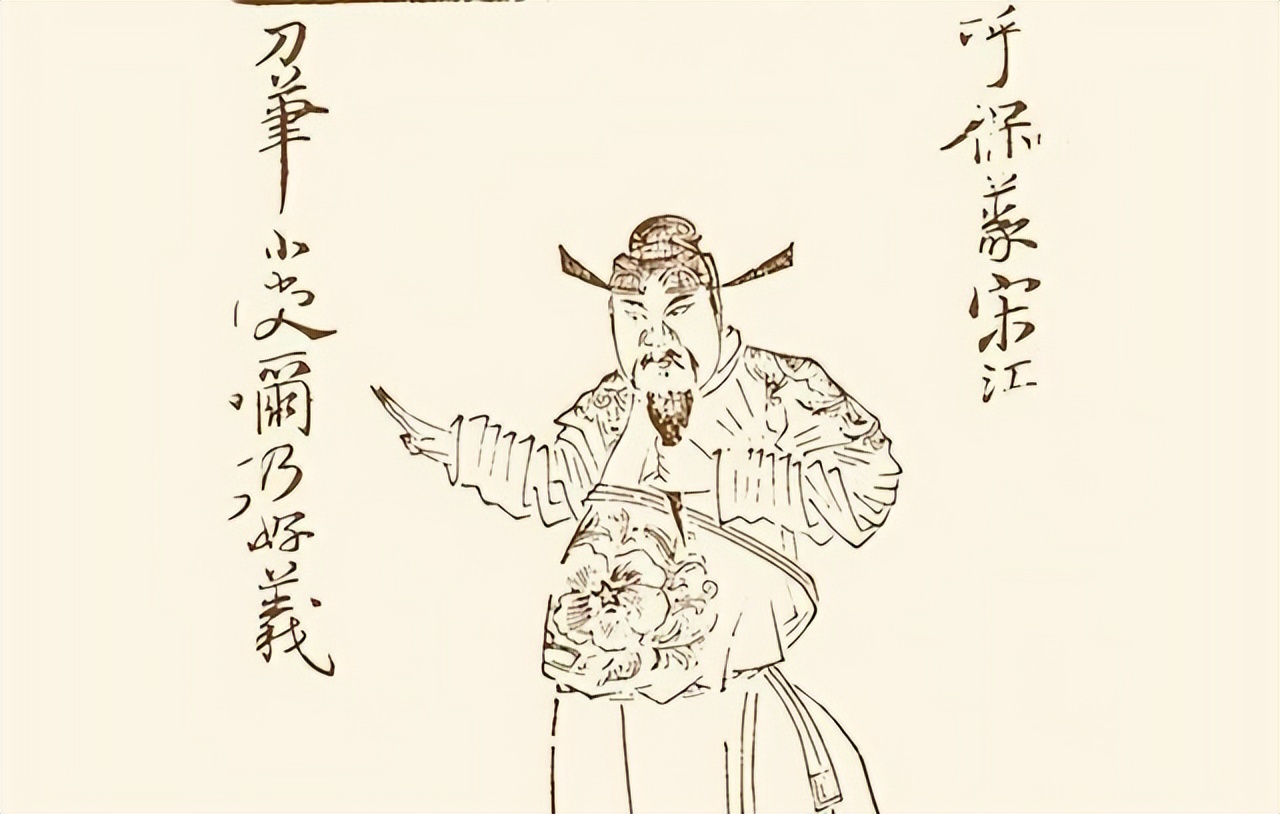 呼保義宋江
刀筆小吏爾乃好義